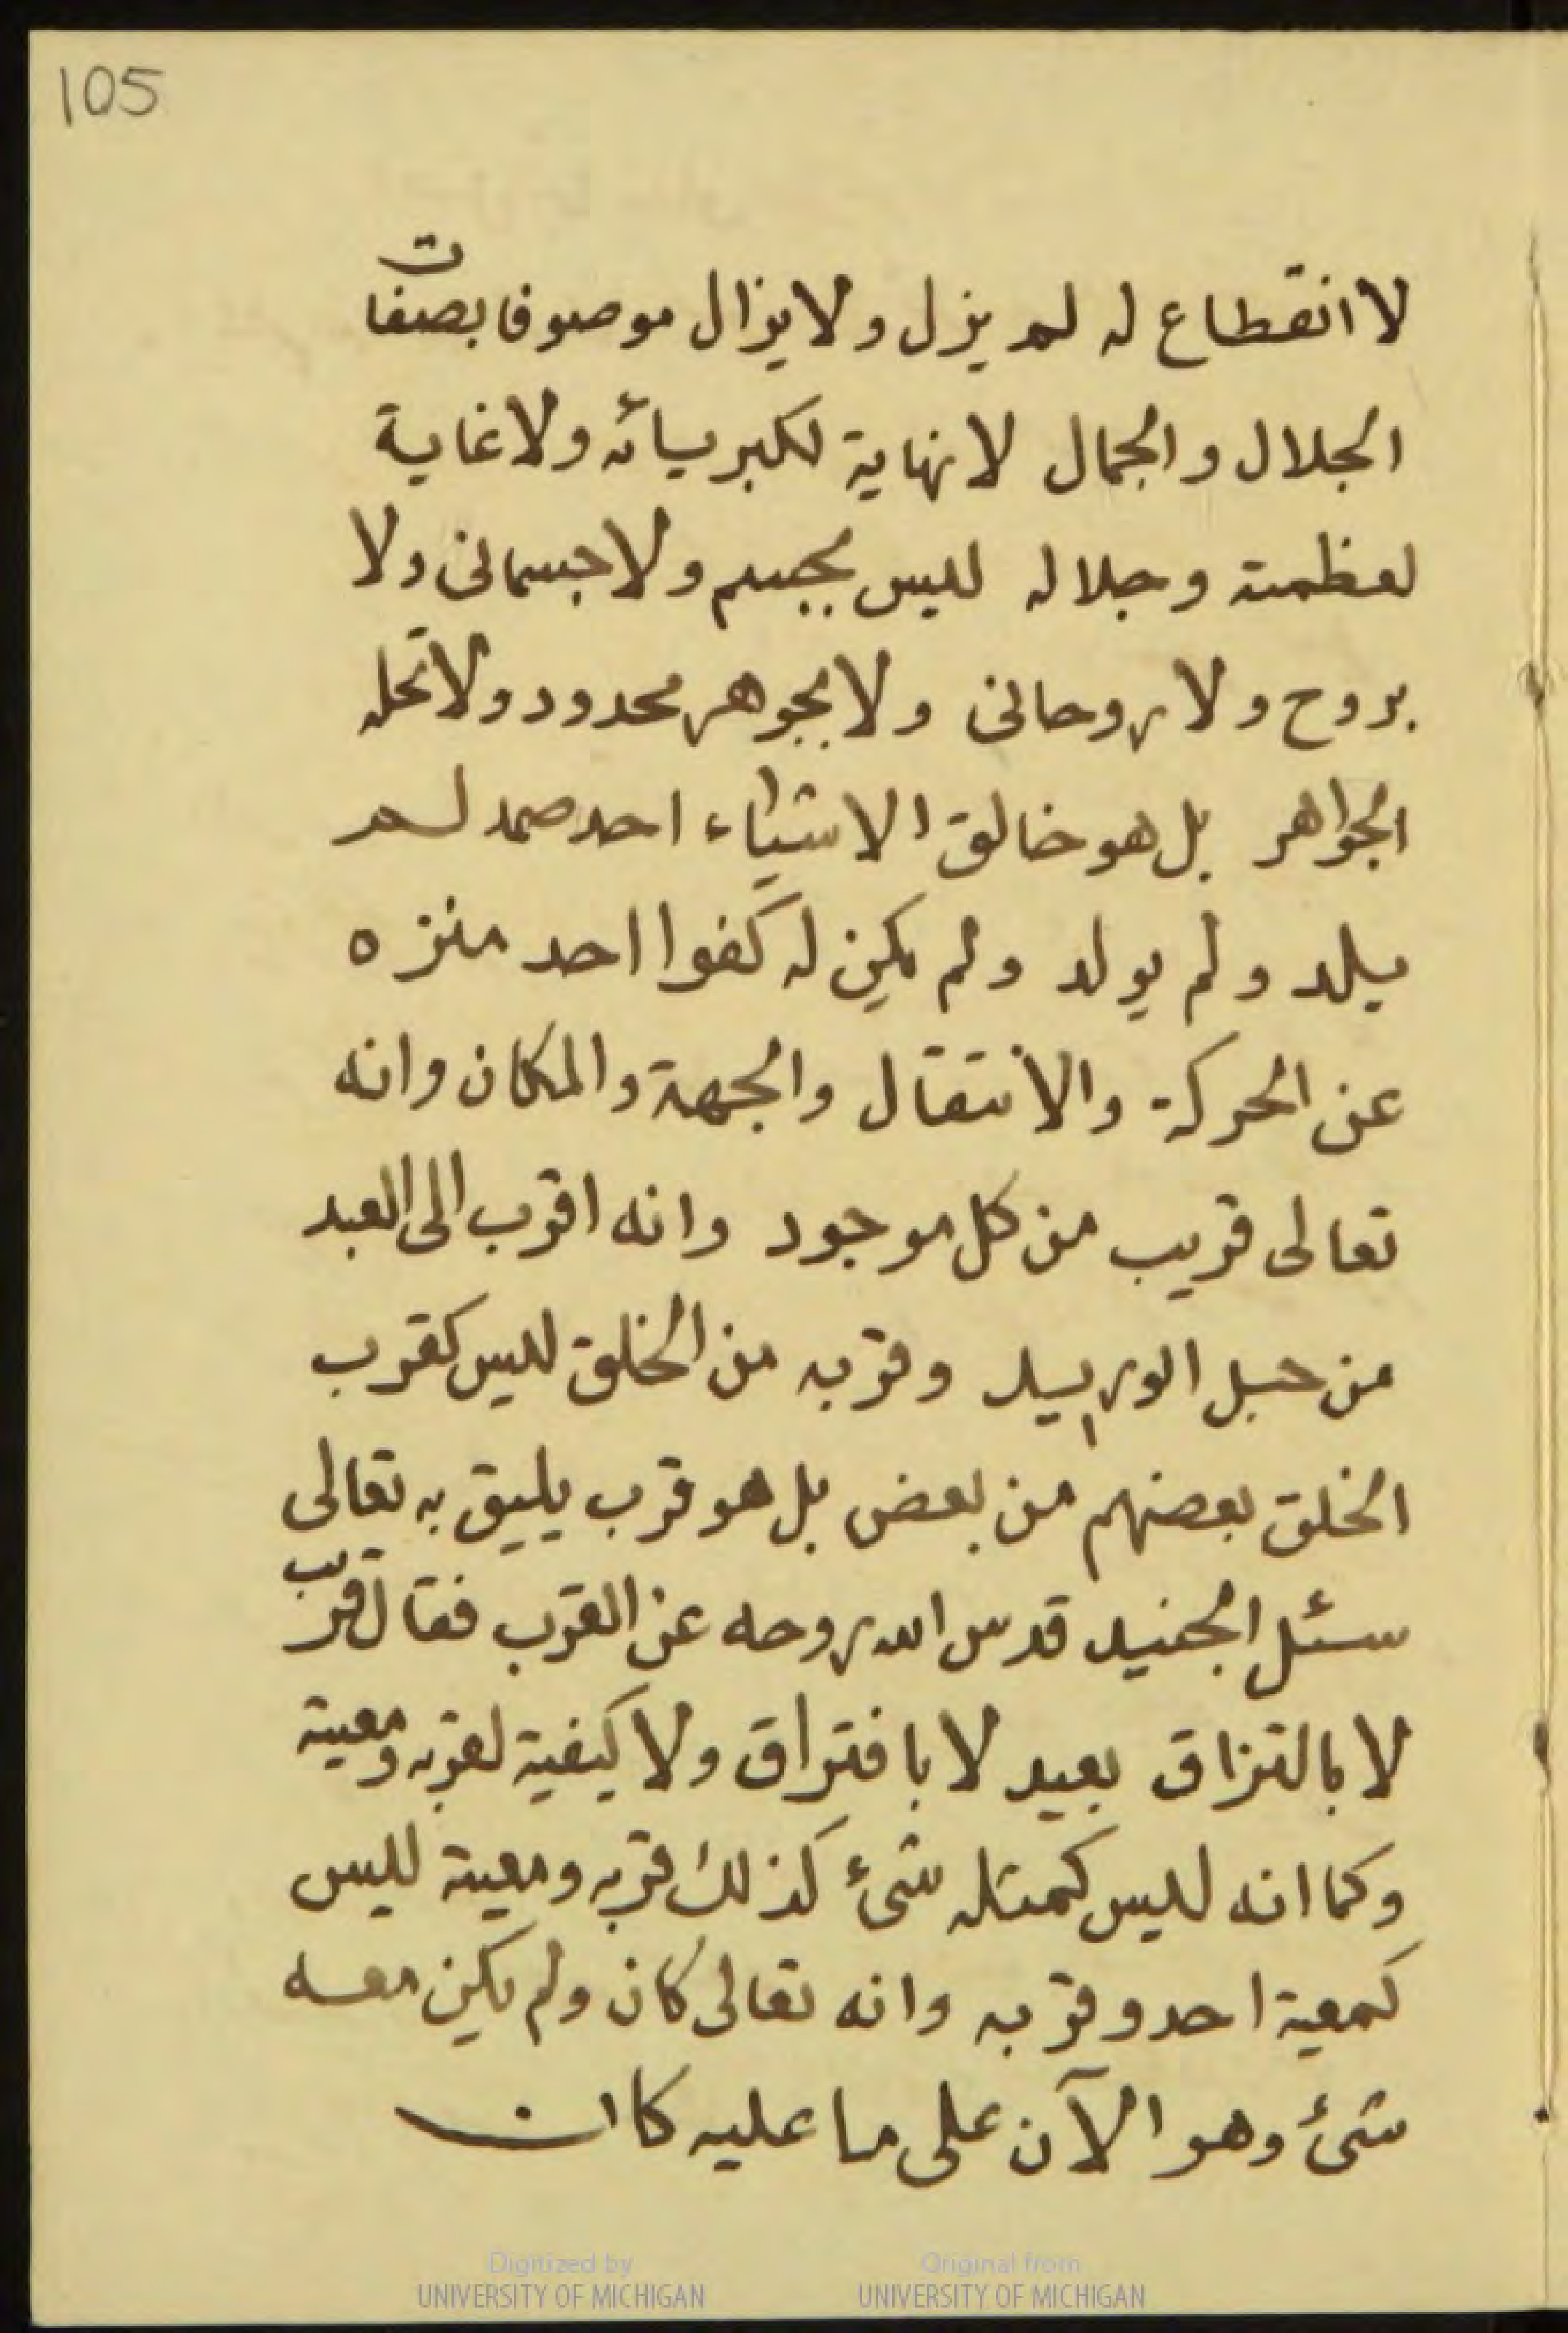 105
لا انقطاع له لم يزل ولا يزال موصوفا بصفات
الجلال والجمال لا نهاية لكبريائه ولا غاية
لعظمته وجلاله ليس بجسم ولا جسمانى ولا
بروح ولا روحانى ولا بجوهر محدود ولا تحله
الجواهر بل هو خالق الاشياء احد صمد لم
يلد ولم يولد ولم يكن له كفوا احد منزه
عن الحركة والانتقال والجهة والمكان وانه
تعالى قريب من كل موجود وانه اقرب الى العبد
من حبل الوريد وقربه من الخلق ليس كقرب
الخلق بعضهم من بعض بل هو قرب يليق به تعالى
سئل الجنيد قدس الله روحه عن القرب فقال قريب
لا بالتزاق بعيد لا بافتراق ولا كيفية لقربه ومعيته
وكما انه ليس كمثله شئ كذلك قربه ومعيته ليس
كمعية احد وقربه وانه تعالى كان ولم يكن معه
شئ وهو الآن على ما عليه كان
Digitized by
UNIVERSITY OF MICHIGAN
Original from
UNIVERSITY OF MICHIGAN